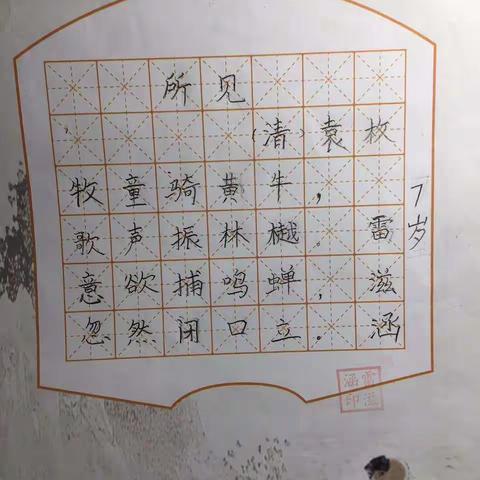 所见
（清）袁枚
牧童骑黄牛，
歌声振林樾。
意欲捕鸣蝉，
忽然闭口立。
7岁
雷滋涵
雷滋涵印